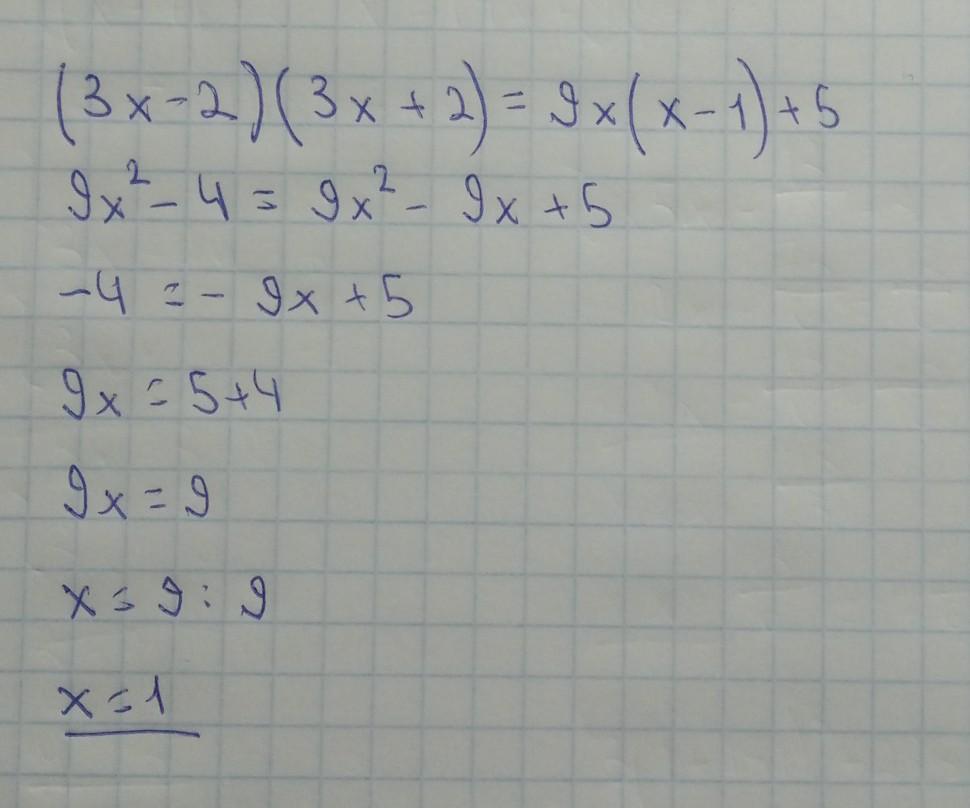 (3x-2)(3x+2)=9x(x-1)+5
9x²-4=9x²-9x+5
-4=-9x+5
9x=5+4
9x=9
x=9:9
x=1